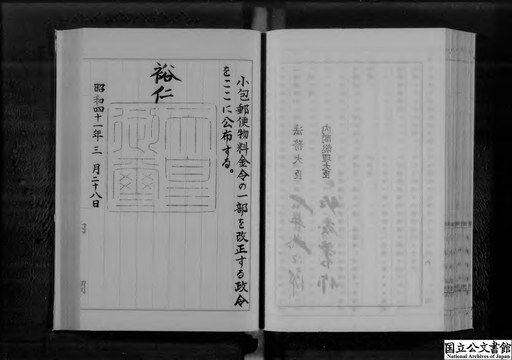 小包郵便物料金令の一部を改正する政令
をここに公布する。
裕仁
天皇御璽
昭和四十一年三月二十八日
内閣総理大臣
法務大臣
国立公文書館
National Archives of Japan